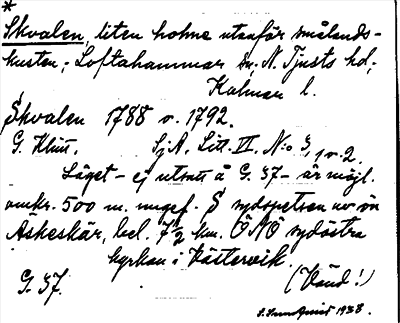 *
Skvalen, liten holme utanför smålands-
kusten; Loftahammar sn; N. Tjusts hd;
Kalmar l.
Skvalen 1788 o. 1792.
G. Klint. SjA. Litt. VI. N:o 3, 1 o. 2.
Läget – ej utsatt å G. 37 – är möjl.
omkr. 500 m. ungef. S sydspetsen av ön
Äskeskär, bel. 7 1/2 km. ÖNÖ sydöstra
kyrkan i Västervik.
G. 37. (Vänd!)
1938.